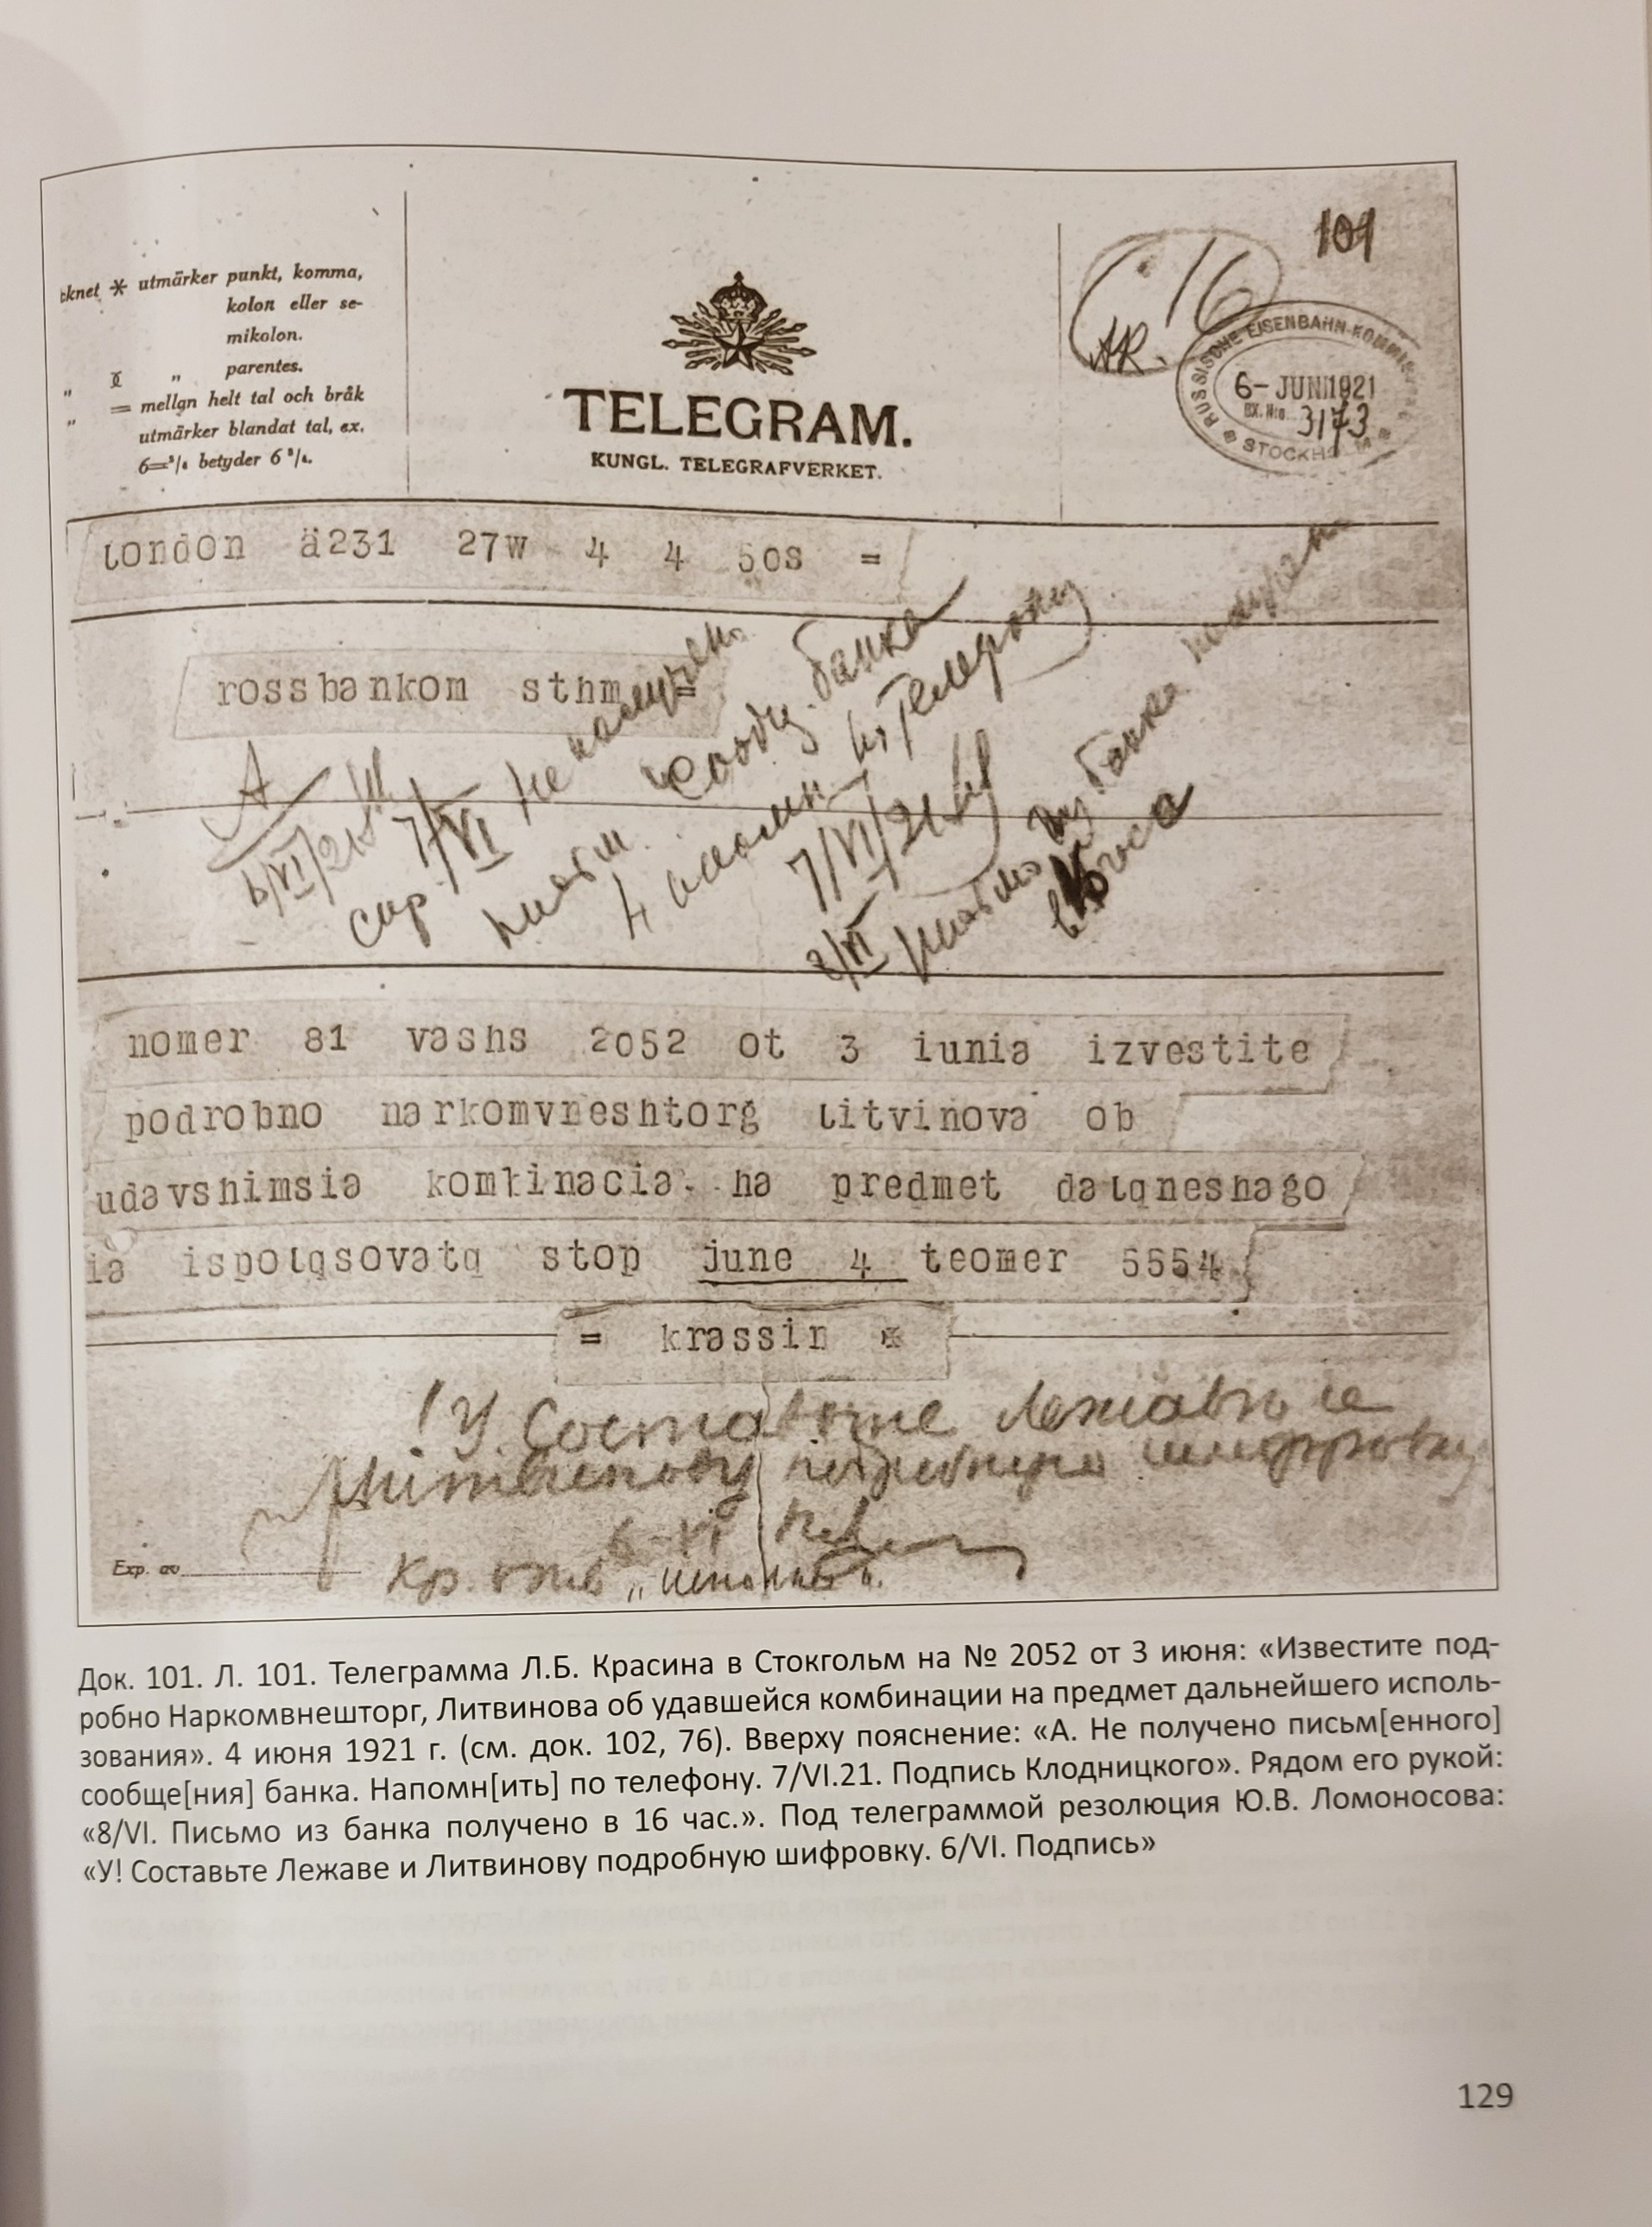 101
16
AR.
cknet * utmärker punkt, komma,
kolon eller se-
mikolon.
" " parentes.
" = mellan helt tal och bråk
utmärker blandat tal, ex.
6=⁵/₆ betyder 6 ⁵/₆.
TELEGRAM.
KUNGL. TELEGRAFVERKET.
RUSSISCHE EISENBAHN-KOMM
6- JUNI 1921
BX. N:o. 3173
STOCKHOLM
london ä231 27w 4 4 50s =
rossbankom sthm =
A
6/VI/21
7/VI Не получено
письм. сообщ. банка
напомн. по телефону
7/VI/21
8/VI Письмо из банка получено
в 16 часа
nomer 81 vashs 2052 ot 3 iunia izvestite
podrobno narkomvneshtorg litvinova ob
udavshimsia kombinacia. na predmet dalqneshago
ia ispolqsovatq stop june 4 teomer 5554
= krassin *
! У. Составьте Лежаве и
Литвинову подробную шифровку
6-VI
Кр.
Exp. av
Док. 101. Л. 101. Телеграмма Л.Б. Красина в Стокгольм на № 2052 от 3 июня: «Известите под-
робно Наркомвнешторг, Литвинова об удавшейся комбинации на предмет дальнейшего исполь-
зования». 4 июня 1921 г. (см. док. 102, 76). Вверху пояснение: «А. Не получено письм[енного]
сообще[ния] банка. Напомн[ить] по телефону. 7/VI.21. Подпись Клодницкого». Рядом его рукой:
«8/VI. Письмо из банка получено в 16 час.». Под телеграммой резолюция Ю.В. Ломоносова:
«У! Составьте Лежаве и Литвинову подробную шифровку. 6/VI. Подпись»
129